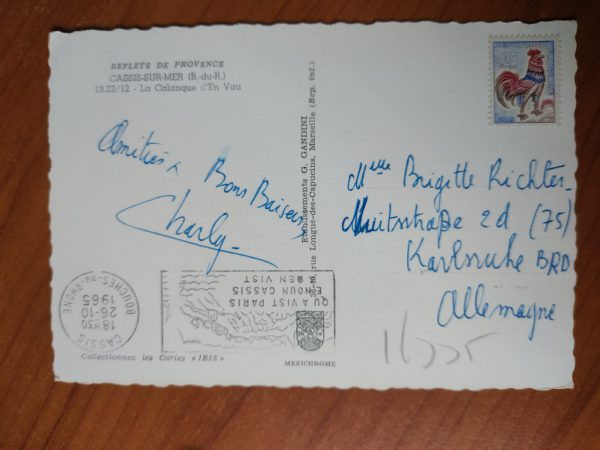 REFLETS DE PROVENCE
CASSIS-SUR-MER (B.-du-R.)
13.22/12 - La Calanque d'En Vau
Amitiés &
Bons Baisers
Charly
Etablissements G. GANDINI
rue Longue-des-Capucins, Marseille (Rep. int.)
0,25
Melle Brigitte Richter
2d (75)
Karlsruhe BRD
Allemagne
16335
CASSIS
18H30
26-10
1965
BOUCHES-DU-RHONE
QU A VIST PARIS
E NOUN CASSIS
REN VIST
Collectionnez les Cartes «IRIS»
MEXICHROME